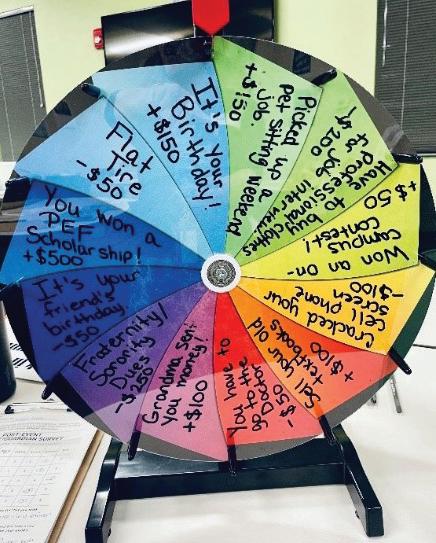 It's your
Birthday!
+$150
Picked up a
pet sitting weekend
job.
+$150
Have to buy clothes
for professional
Job interview
-$200
Won an on-
campus
contest!
+$50
Cracked your
cell phone
screen
-$100
Sell your old
textbooks
+$100
You have to
go to the
Doctor
-$50
Grandma sent
you money!
+$100
Fraternity/
Sorority
Dues
-$250
It's your
friend's
birthday
-$50
You won a
PEF
Scholarship!
+$500
Flat
Tire
-$50
POST-EVENT
GUARDIAN SURVEY